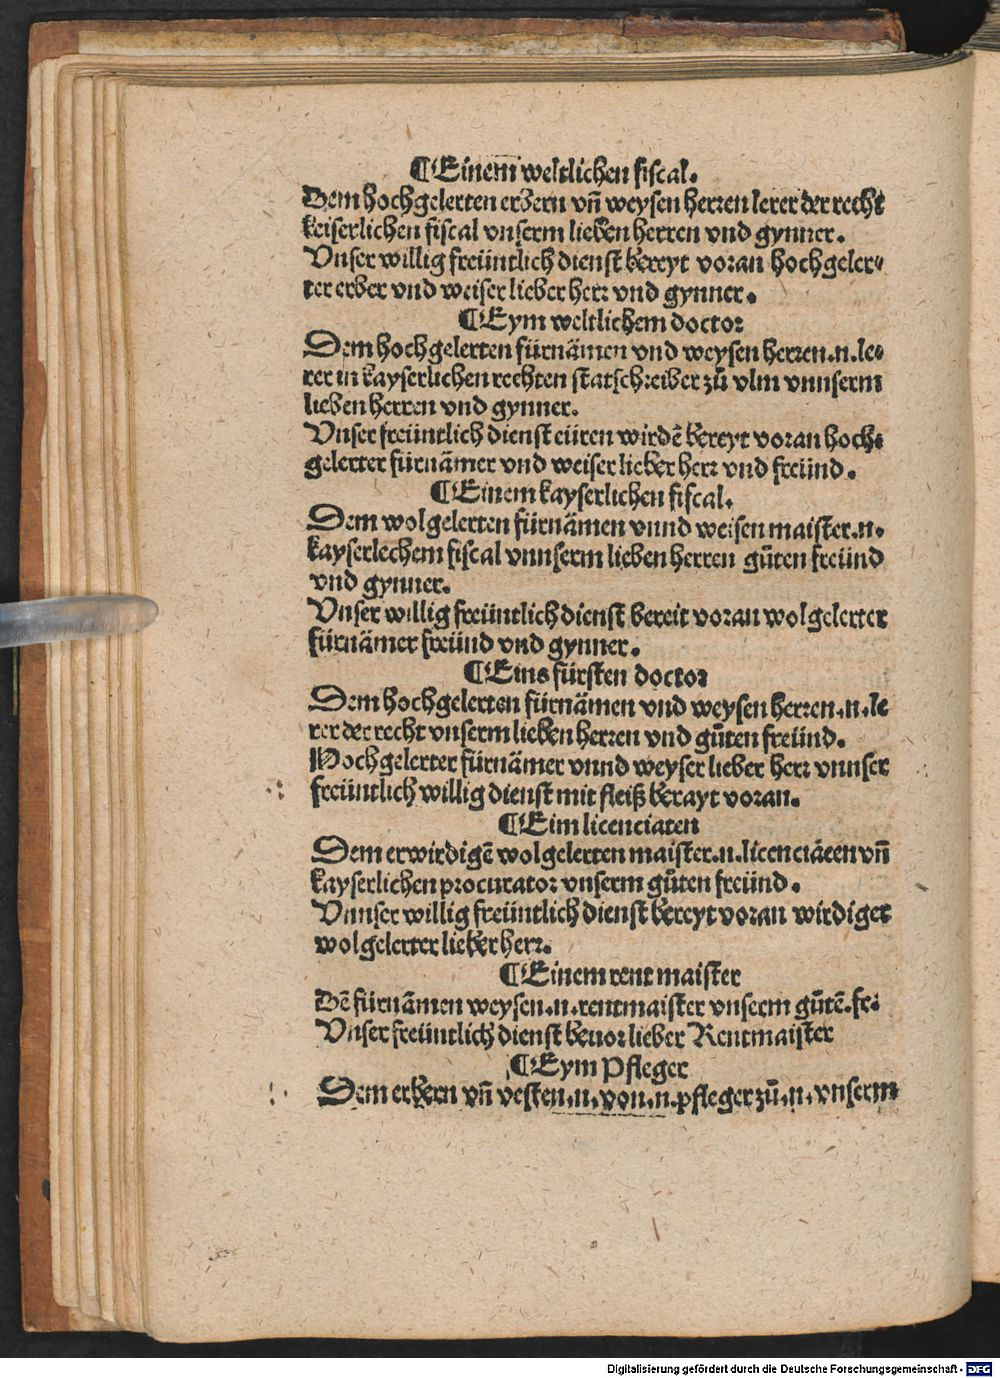 ¶Einem weltlichen fiscal.
Dem hochgelerten erbern vñ weysen herren lerer der recht
keiserlichen fiscal vnserm lieben herren vnd gynner.
Vnser willig freüntlich dienst bereyt voran hochgeler⸗
ter erber vnd weiser lieber herr vnd gynner.
¶Eym weltlichem doctor
Dem hochgelerten fürnämen vnd weysen herren.n.le⸗
rer in kayserlichen rechten statschreiber zů vlm vnnserm
lieben herren vnd gynner.
Vnser freüntlich dienst eüren wirdē bereyt voran hoch⸗
gelerter fürnämer vnd weiser lieber herr vnd freünd.
¶Einem kayserlichen fiscal.
Dem wolgelerten fürnämen vnnd weisen maister.n.
kayserlechem fiscal vnnserm lieben herren gůten freünd
vnd gynner.
Vnser willig freüntlich dienst bereit voran wolgelerter
fürnämer freünd vnd gynner.
¶Eins fürsten doctor
Dem hochgelerten fürnämen vnd weysen herren.n.le
rer der recht vnserm lieben herren vnd gůten freünd.
Hochgelerter fürnämer vnnd weyser lieber herr vnnser
freüntlich willig dienst mit fleiß berayt voran.
¶Eim licenciaten
Dem erwirdigē wolgelerten maister.n.licenciäten vñ
kayserlichen procurator vnserm gůten freünd.
Vnnser willig freüntlich dienst bereyt voran wirdiger
wolgelerter lieber herr.
¶Einem rent maister
Dē fürnämen weysen.n.rentmaister vnserm gůtē.fr.
Vnser freüntlich dienst beuor lieber Rentmaister
¶Eym Pfleger
Dem erbern vñ vesten.n.von.n.pfleger zů.n.vnserm
Digitalisierung gefördert durch die Deutsche Forschungsgemeinschaft - DFG